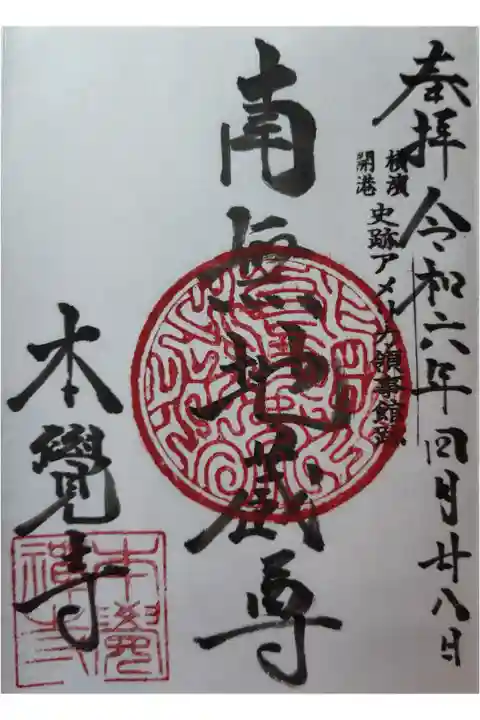 奉拝 令和六年四月廿八日
横濱
開港
史跡アメリカ領事館跡
南無地蔵尊
本覺寺